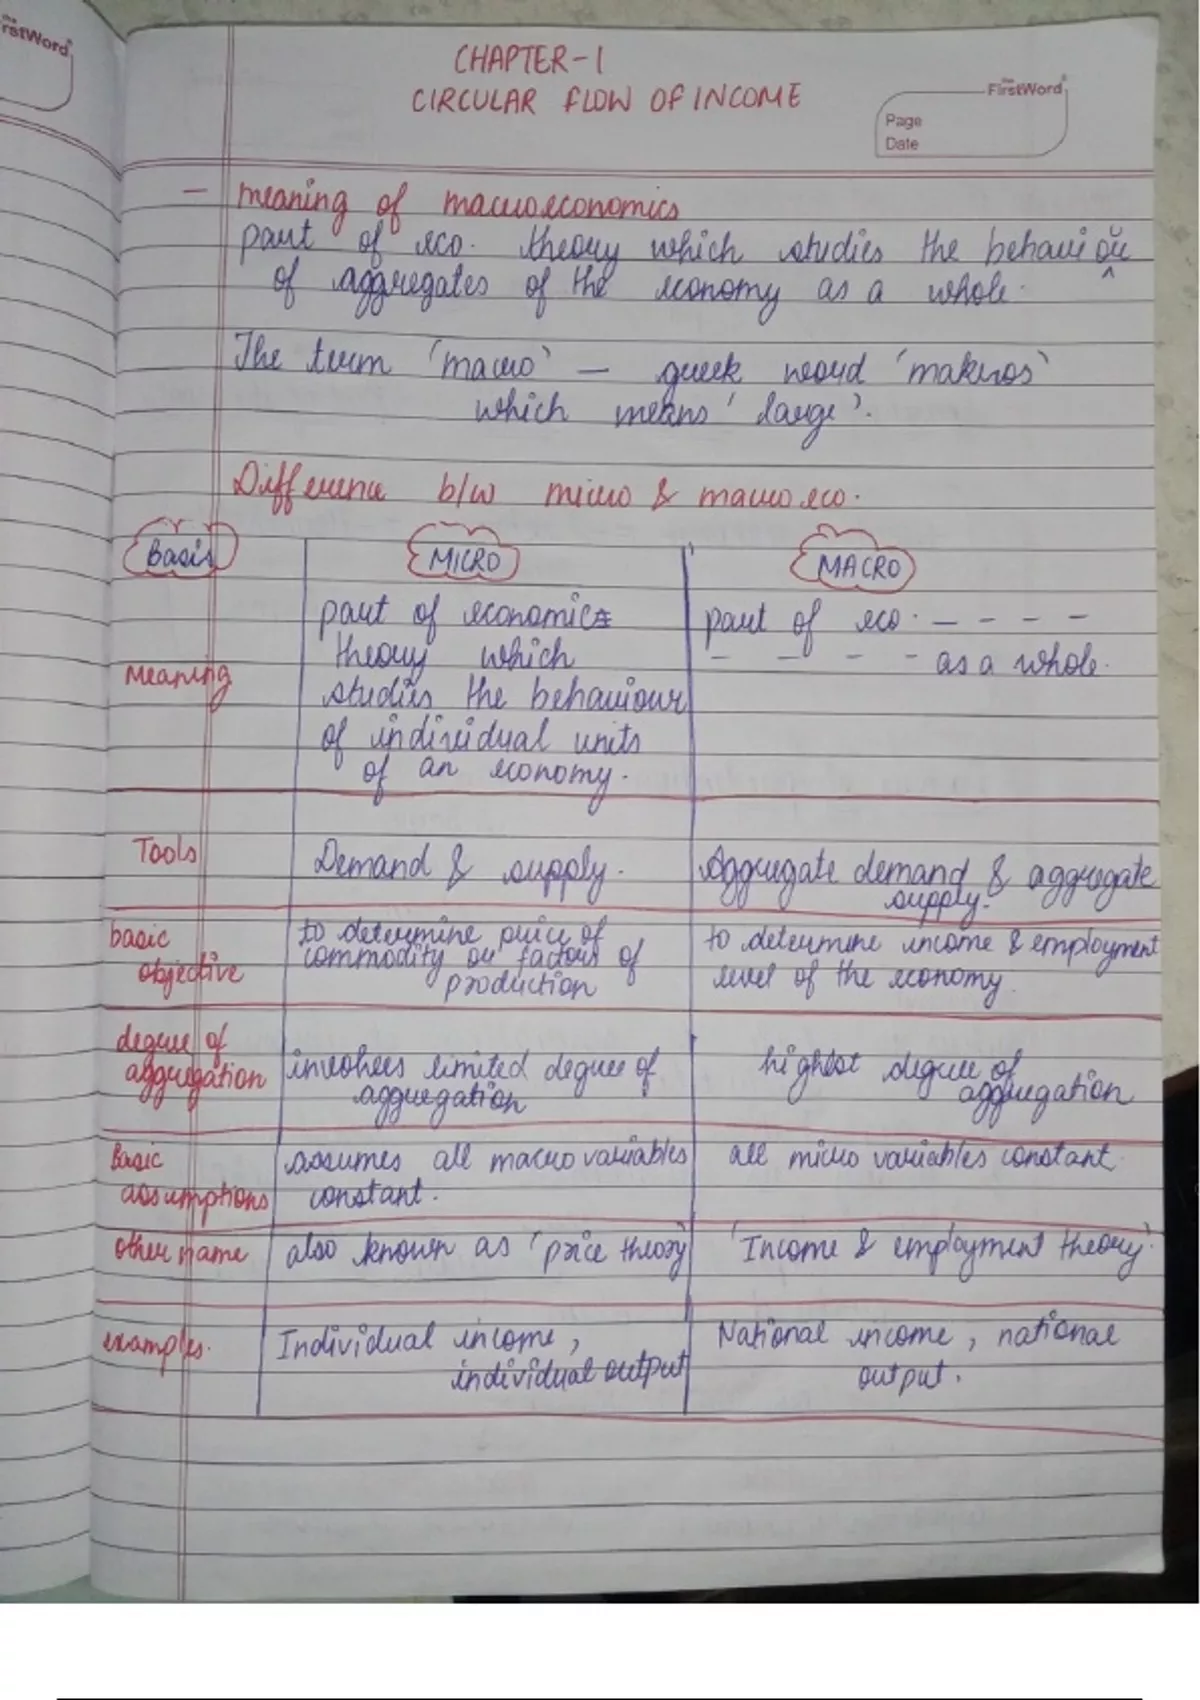 the
FirstWord
CHAPTER-1
CIRCULAR FLOW OF INCOME
the
FirstWord
Page
Date
- meaning of macroeconomics
part of eco. theory which studies the behaviour
of aggregates of the economy as a whole.
The term 'macro' - greek word 'makros'
which means 'large'.
Difference b/w micro & macro eco.
Basis MICRO MACRO
part of economics part of eco. - - - -
theory which - - - - as a whole.
Meaning
studies the behaviour
of individual units
of an economy.
Tools Demand & supply. Aggregate demand & aggregate
supply.
basic to determine price of to determine income & employment
objective commodity or factors of level of the economy.
production
degree of
aggregation involves limited degree of highest degree of
aggregation aggregation
Basic assumes all macro variables all micro variables constant.
assumptions constant.
other name also known as 'price theory' 'Income & employment theory'.
examples. Individual income, National income, national
individual output output.